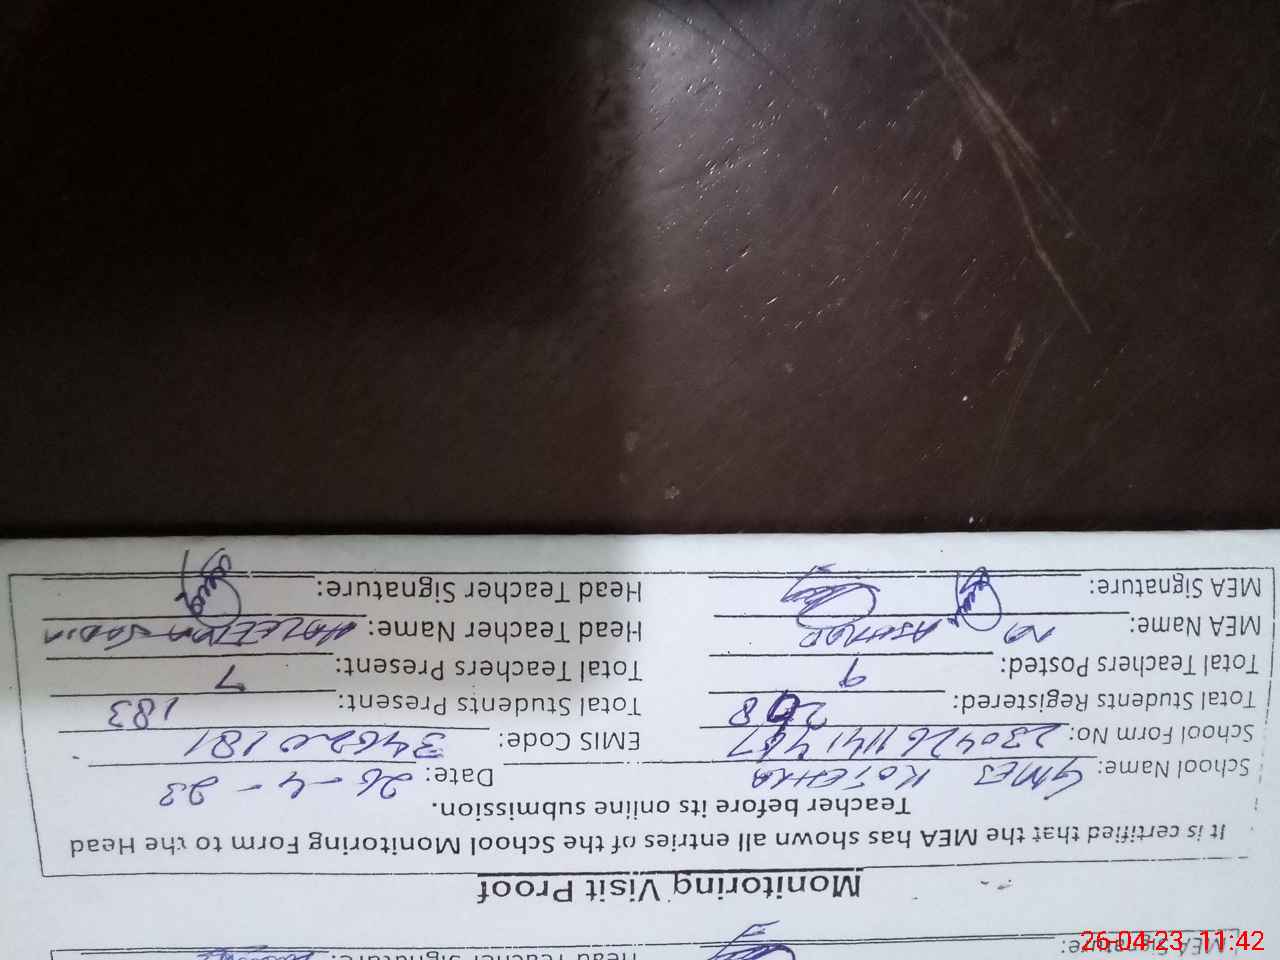 MEA Signature:
Head Teacher Signature:
Monitoring Visit Proof
It is certified that the MEA has shown all entries of the School Monitoring Form to the Head
Teacher before its online submission.
School Name: GMES Date: 26-4-23
School Form No: EMIS Code: 34620181
Total Students Registered: 208 Total Students Present: 183
Total Teachers Posted: 9 Total Teachers Present: 7
MEA Name: Head Teacher Name:
MEA Signature: Head Teacher Signature:
26-04-23 11:42